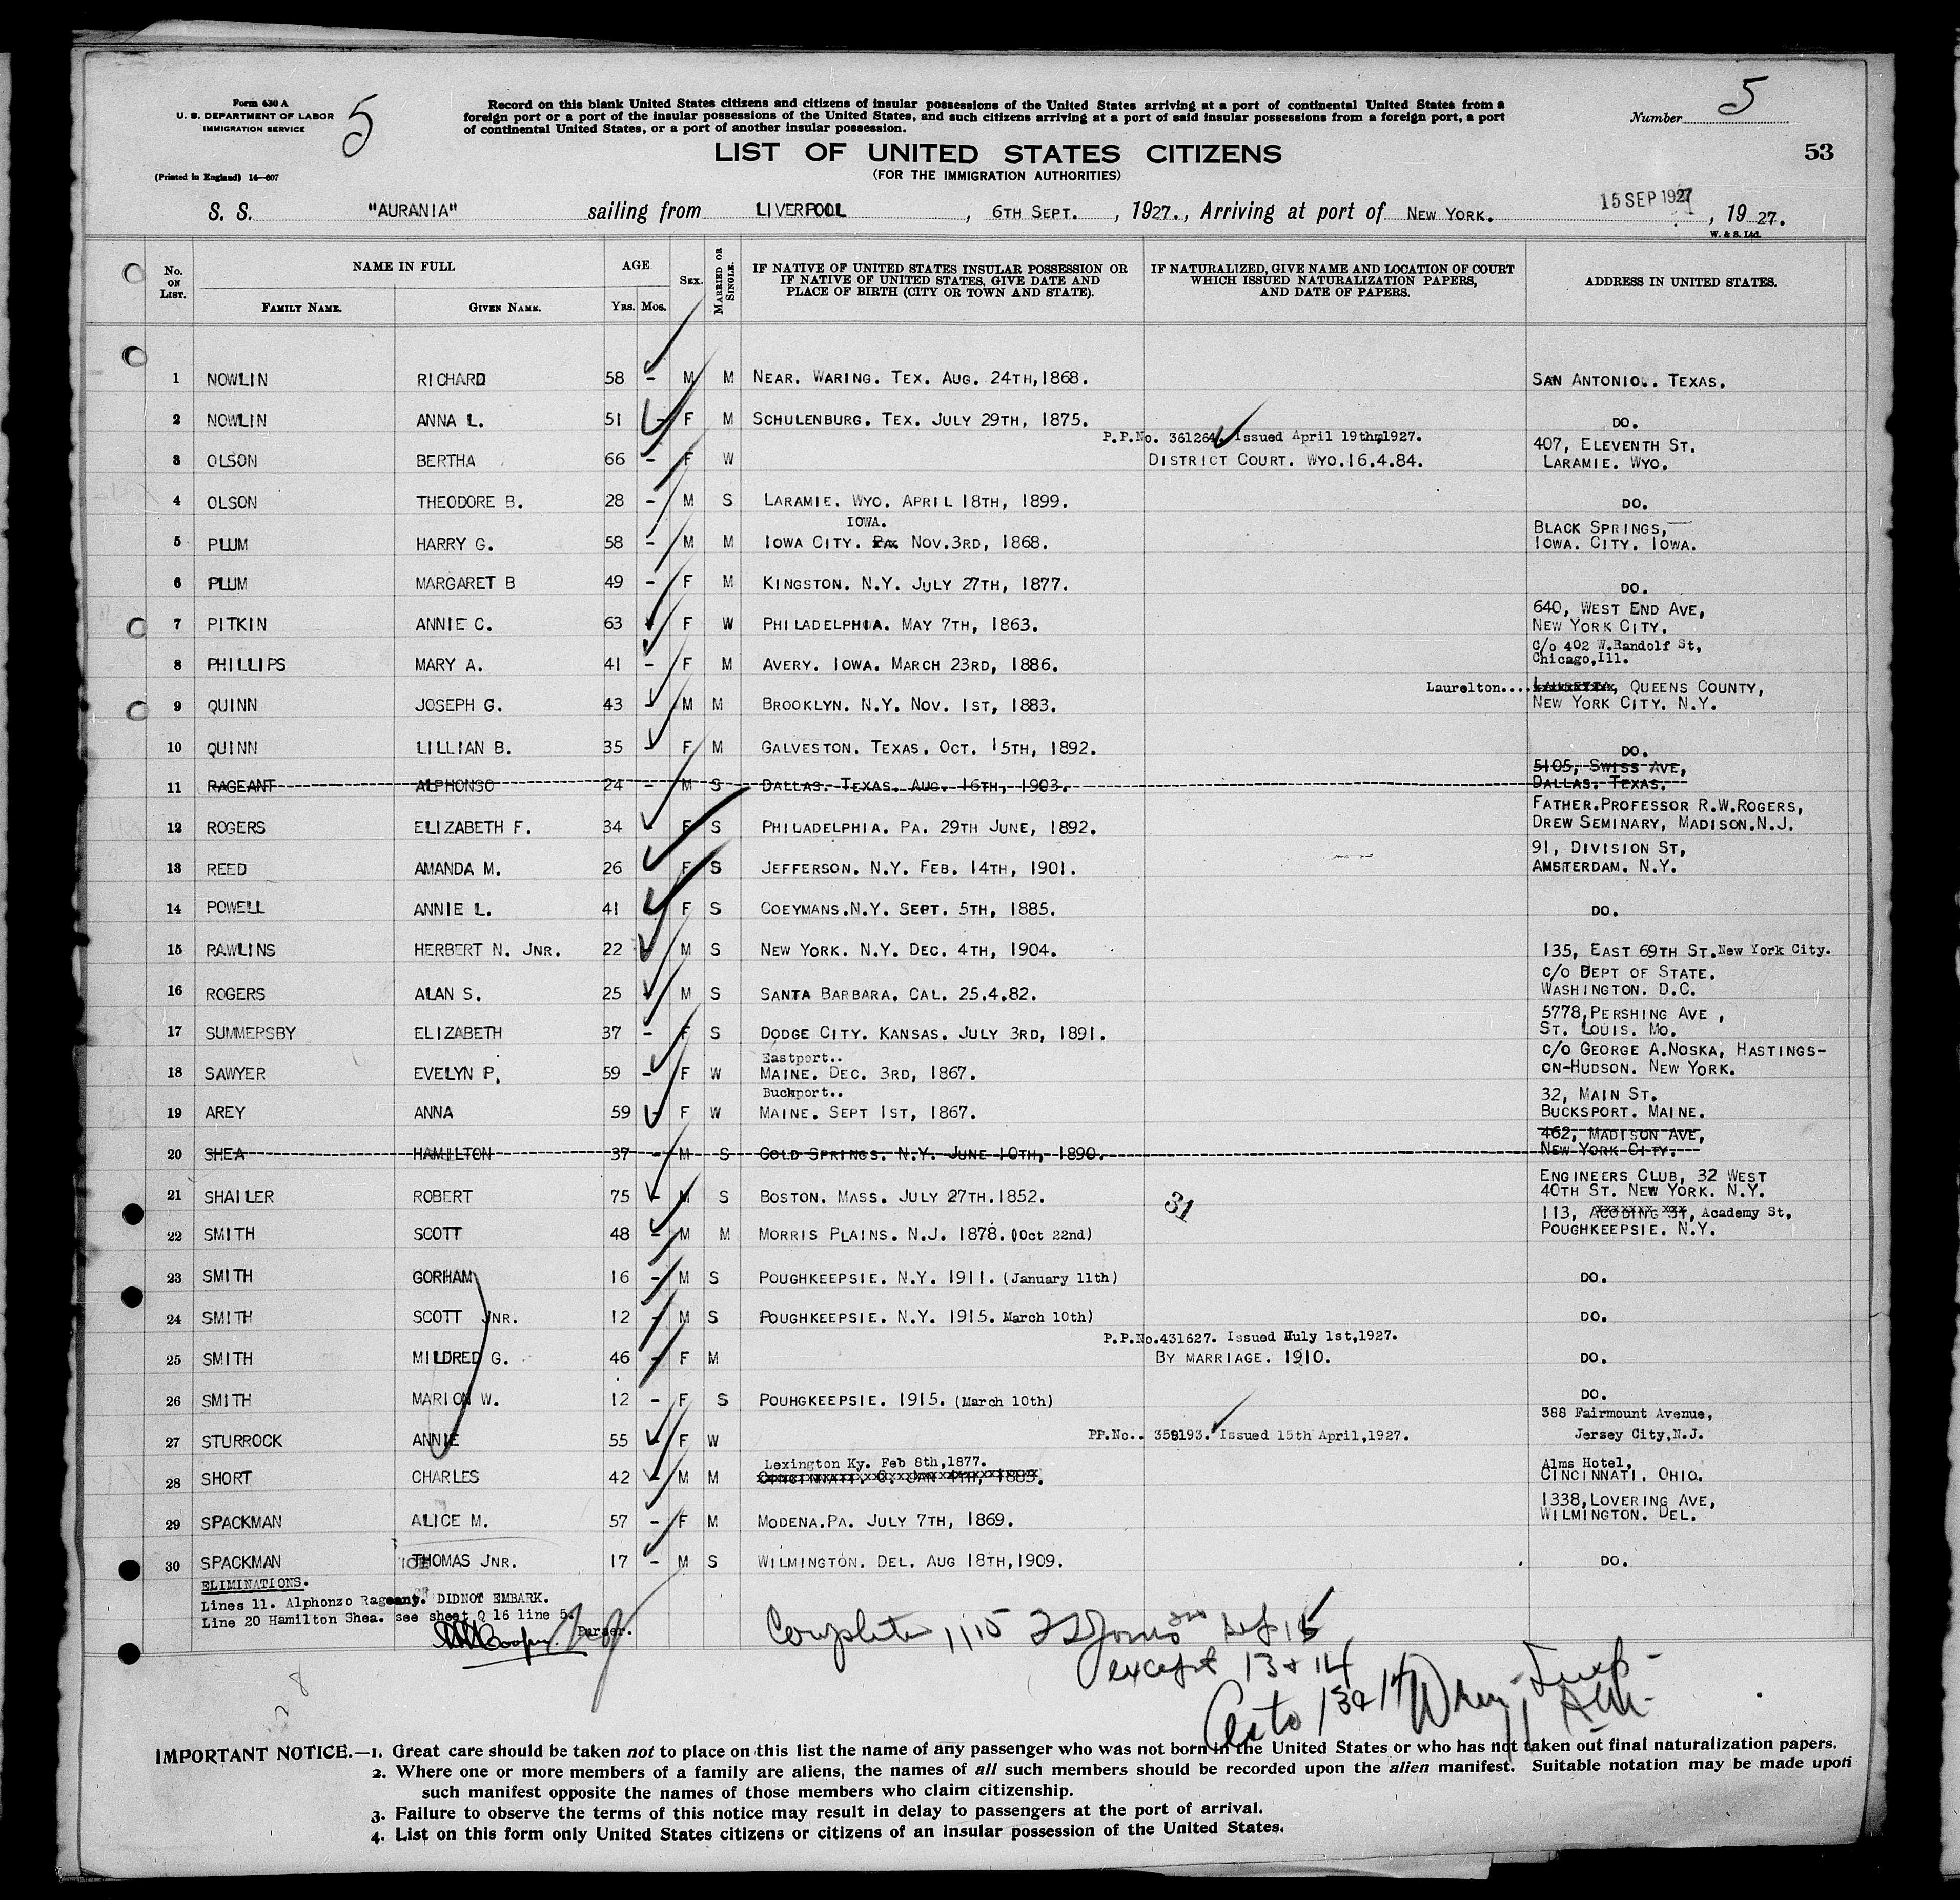 Form 630 A
U. S. DEPARTMENT OF LABOR
IMMIGRATION SERVICE
(Printed in England) 14—607
5
Record on this blank United States citizens and citizens of insular possessions of the United States arriving at a port of continental United States from a
foreign port or a port of the insular possessions of the United States, and such citizens arriving at a port of said insular possessions from a foreign port, a port
of continental United States, or a port of another insular possession.
Number 5
53
LIST OF UNITED STATES CITIZENS
(FOR THE IMMIGRATION AUTHORITIES)
S. S. "AURANIA" sailing from LIVERPOOL, 6TH SEPT., 1927., Arriving at port of NEW YORK. 15 SEP 1927, 19 27.
W. & S. Ltd.
No. ON LIST. NAME IN FULL AGE SEX. MARRIED OR SINGLE. IF NATIVE OF UNITED STATES INSULAR POSSESSION OR IF NATIVE OF UNITED STATES, GIVE DATE AND PLACE OF BIRTH (CITY OR TOWN AND STATE). IF NATURALIZED, GIVE NAME AND LOCATION OF COURT WHICH ISSUED NATURALIZATION PAPERS, AND DATE OF PAPERS. ADDRESS IN UNITED STATES.
FAMILY NAME. GIVEN NAME. YRS. MOS.
1 NOWLIN RICHARD 58 - M M NEAR. WARING. TEX. AUG. 24TH,1868. SAN ANTONIO.. TEXAS.
2 NOWLIN ANNA L. 51 - F M SCHULENBURG. TEX. JULY 29TH, 1875. DO.
P.P.No. 361264. Issued April 19th,1927. 407, ELEVENTH ST.
3 OLSON BERTHA 66 - F W DISTRICT COURT. WYO.16.4.84. LARAMIE. WYO.
4 OLSON THEODORE B. 28 - M S LARAMIE. WYO. APRIL 18TH, 1899. DO.
IOWA. BLACK SPRINGS,
5 PLUM HARRY G. 58 - M M IOWA CITY. PA. NOV.3RD, 1868. IOWA. CITY. IOWA.
6 PLUM MARGARET B 49 - F M KINGSTON. N.Y. JULY 27TH, 1877. DO.
640, WEST END AVE,
7 PITKIN ANNIE C. 63 - F W PHILADELPHIA. MAY 7TH, 1863. NEW YORK CITY.
c/o 402 W.Randolf St,
8 PHILLIPS MARY A. 41 - F M AVERY. IOWA. MARCH 23RD, 1886. Chicago,Ill.
Laurelton.... LAURETTA, QUEENS COUNTY,
9 QUINN JOSEPH G. 43 - M M BROOKLYN. N.Y. NOV. 1ST, 1883. NEW YORK CITY. N.Y.
10 QUINN LILLIAN B. 35 - F M GALVESTON. TEXAS. OCT. 15TH, 1892. DO.
5105, SWISS AVE,
11 RAGEANT ALPHONSO 24 - M S DALLAS. TEXAS. AUG. 16TH, 1903. DALLAS. TEXAS.
FATHER.PROFESSOR R.W.ROGERS,
12 ROGERS ELIZABETH F. 34 - F S PHILADELPHIA. PA. 29TH JUNE, 1892. DREW SEMINARY, MADISON.N.J.
91, DIVISION ST,
13 REED AMANDA M. 26 F S JEFFERSON. N.Y. FEB. 14TH, 1901. AMSTERDAM. N.Y.
14 POWELL ANNIE L. 41 F S COEYMANS.N.Y. SEPT. 5TH, 1885. DO.
15 RAWLINS HERBERT N. JNR. 22 M S NEW YORK. N.Y. DEC. 4TH, 1904. 135, EAST 69TH ST.New York City.
c/o DEPT OF STATE.
16 ROGERS ALAN S. 25 - M S SANTA BARBARA. CAL. 25.4.82. WASHINGTON. D.C.
5778,PERSHING AVE ,
17 SUMMERSBY ELIZABETH 37 - F S DODGE CITY. KANSAS. JULY 3RD, 1891. ST. LOUIS. MO.
Eastport.. c/o GEORGE A.NOSKA, HASTINGS-
18 SAWYER EVELYN P. 59 - F W MAINE. DEC. 3RD, 1867. ON-HUDSON. NEW YORK.
Buckport.. 32, MAIN ST.
19 AREY ANNA 59 - F W MAINE. SEPT 1ST, 1867. BUCKSPORT. MAINE.
462, MADISON AVE,
20 SHEA HAMILTON 37 - M S COLD SPRINGS. N.Y. JUNE 10TH, 1890. NEW YORK CITY.
ENGINEERS CLUB, 32 WEST
21 SHAILER ROBERT 75 - M S BOSTON. MASS. JULY 27TH.1852. 31 40TH ST. NEW YORK. N.Y.
113, ACODING ST, Academy St,
22 SMITH SCOTT 48 - M M MORRIS PLAINS. N.J. 1878. (Oct 22nd) POUGHKEEPSIE. N.Y.
23 SMITH GORHAM 16 - M S POUGHKEEPSIE. N.Y. 1911. (January 11th) DO.
24 SMITH SCOTT JNR. 12 - M S POUGHKEEPSIE. N.Y. 1915. March 10th) DO.
P.P.No.431627. Issued July 1st,1927.
25 SMITH MILDRED G. 46 - F M BY MARRIAGE. 1910. DO.
26 SMITH MARION W. 12 - F S POUHGKEEPSIE. 1915. (March 10th) DO.
388 Fairmount Avenue,
27 STURROCK ANNIE 55 - F W PP.No.. 359193. Issued 15th April,1927. Jersey City,N.J.
Lexington Ky. Feb 8th,1877. Alms Hotel,
28 SHORT CHARLES 42 - M M CINCINNATI. O. JAN 4TH, 1885. CINCINNATI. OHIO.
1338,LOVERING AVE,
29 SPACKMAN ALICE M. 57 - F M MODENA.PA. JULY 7TH, 1869. WILMINGTON. DEL.
30 SPACKMAN THOMAS JNR. 17 - M S WILMINGTON. DEL. AUG 18TH,1909. DO.
ELIMINATIONS.
Lines 11. Alphonzo Rageant. DIDNOT EMBARK.
Line 20 Hamilton Shea. see sheet Q 16 line 5.
Purser.
Complete 1115 Sep 15
except 13 & 14
As to 13 & 14
IMPORTANT NOTICE.—1. Great care should be taken not to place on this list the name of any passenger who was not born in the United States or who has not taken out final naturalization papers.
2. Where one or more members of a family are aliens, the names of all such members should be recorded upon the alien manifest. Suitable notation may be made upon
such manifest opposite the names of those members who claim citizenship.
3. Failure to observe the terms of this notice may result in delay to passengers at the port of arrival.
4. List on this form only United States citizens or citizens of an insular possession of the United States.